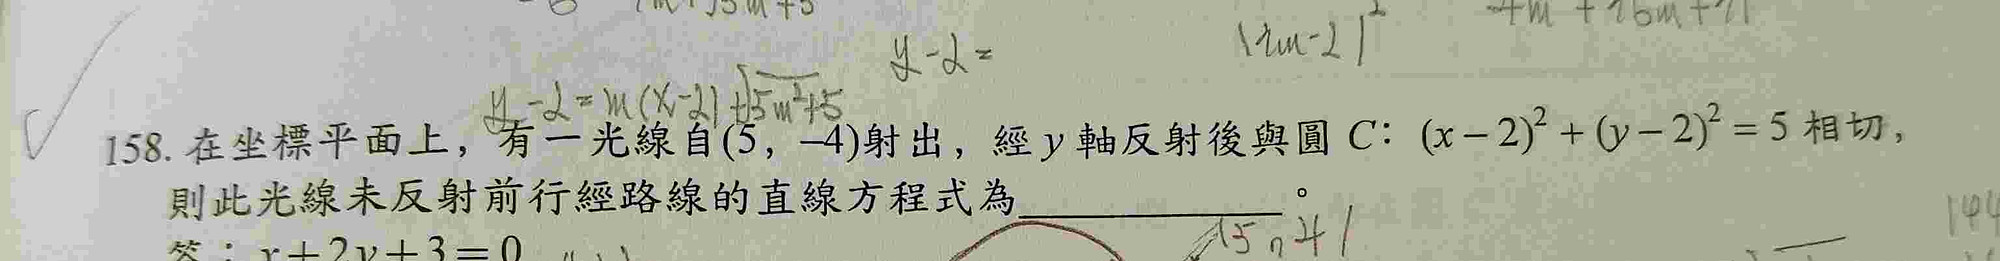 y-2=
y-2=m(x-2)+√5m²+5
158. 在坐標平面上，有一光線自(5，-4)射出，經 y 軸反射後與圓 C：(x-2)²+(y-2)²=5 相切，
則此光線未反射前行經路線的直線方程式為____________。
答：x+2y+3=0